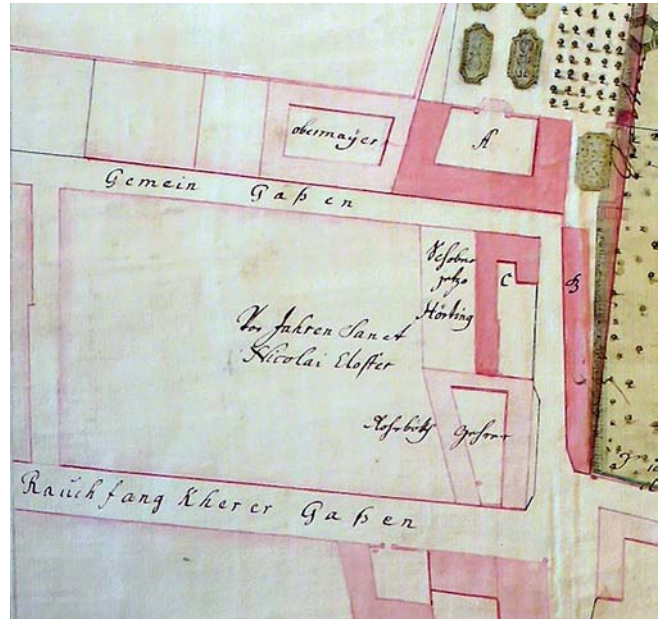 obermaÿer
A
Gemein Gaßen
Schober
jetzo
Hörting
C
B
Vor Jahren Sanct
Nicolai Closter
Gehrer
Rauchfang Kherer Gaßen